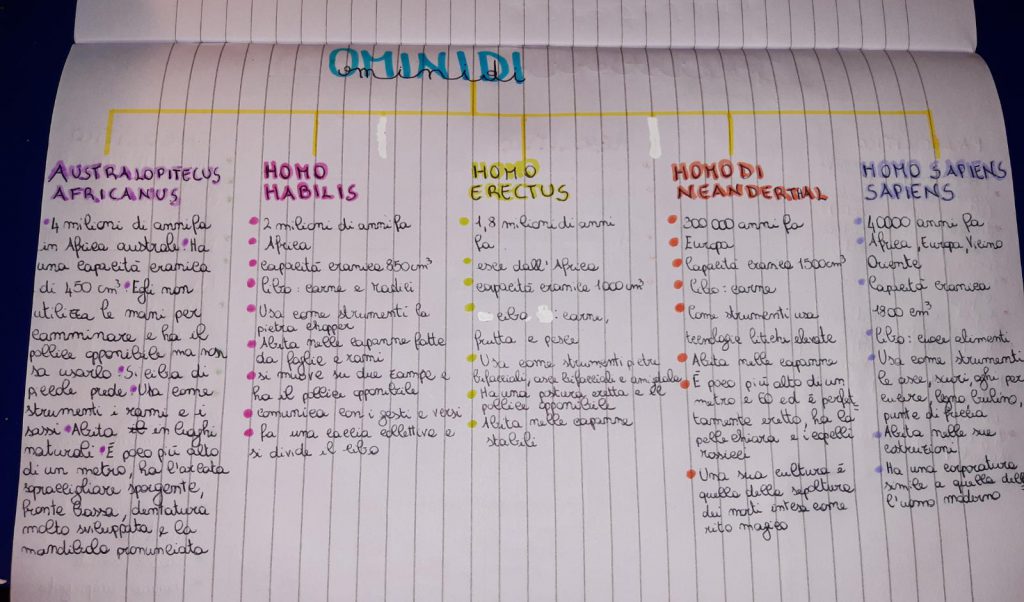 OMINIDI
ominidi
AUSTRALOPITECUS
AFRICANUS
•4 milioni di anni fa
in Africa australe •Ha
una capacità cranica
di 450 cm³ •Egli non
utilizza le mani per
camminare e ha il
pollice opponibile ma non
sa usarlo •Si ciba di
piccole prede •Usa come
strumenti i rami e i
sassi •Abita in luoghi
naturali •È poco più alto
di un metro, ha l'arcata
sopraccigliare sporgente,
fronte bassa, dentatura
molto sviluppata e la
mandibola pronunciata
HOMO
HABILIS
• 2 milioni di anni fa
• Africa
• capacità cranica 850 cm³
• Cibo: carne e radici
• Usa come strumenti la
pietra chopper
• Abita nelle capanne fatte
da foglie e rami
• si muove su due zampe e
ha il pollice opponibile
• comunica con i gesti e versi
• fa una caccia collettiva e
si divide il cibo
HOMO
ERECTUS
• 1,8 milioni di anni
fa
• esce dall'Africa
• capacità cranica 1000 cm³
• cibo: carne,
frutta e pesce
• Usa come strumenti pietre
bifacciali, asce bifacciali e amigdale
• Ha una postura eretta e il
pollice opponibile
• Abita nelle capanne
stabili
HOMO DI
NEANDERTHAL
• 300 000 anni fa
• Europa
• Capacità cranica 1500 cm³
• Cibo: carne
• Come strumenti usa
tecnologie litiche elevate
• Abita nelle capanne
• È poco più alto di un
metro e 60 ed è perfet-
tamente eretto, ha la
pelle chiara e i capelli
rossicci
• Una sua cultura è
quella della sepoltura
dei morti intesa come
rito magico
HOMO SAPIENS
SAPIENS
• 40000 anni fa
• Africa, Europa, Vicino
Oriente
• Capacità cranica
1800 cm³
• Cibo: cuoce alimenti
• Usa come strumenti
le asce, scuri, aghi per
cucire, bulino,
punte di freccia
• Abita nelle sue
costruzioni
• Ha una corporatura
simile a quella dell
l'uomo moderno